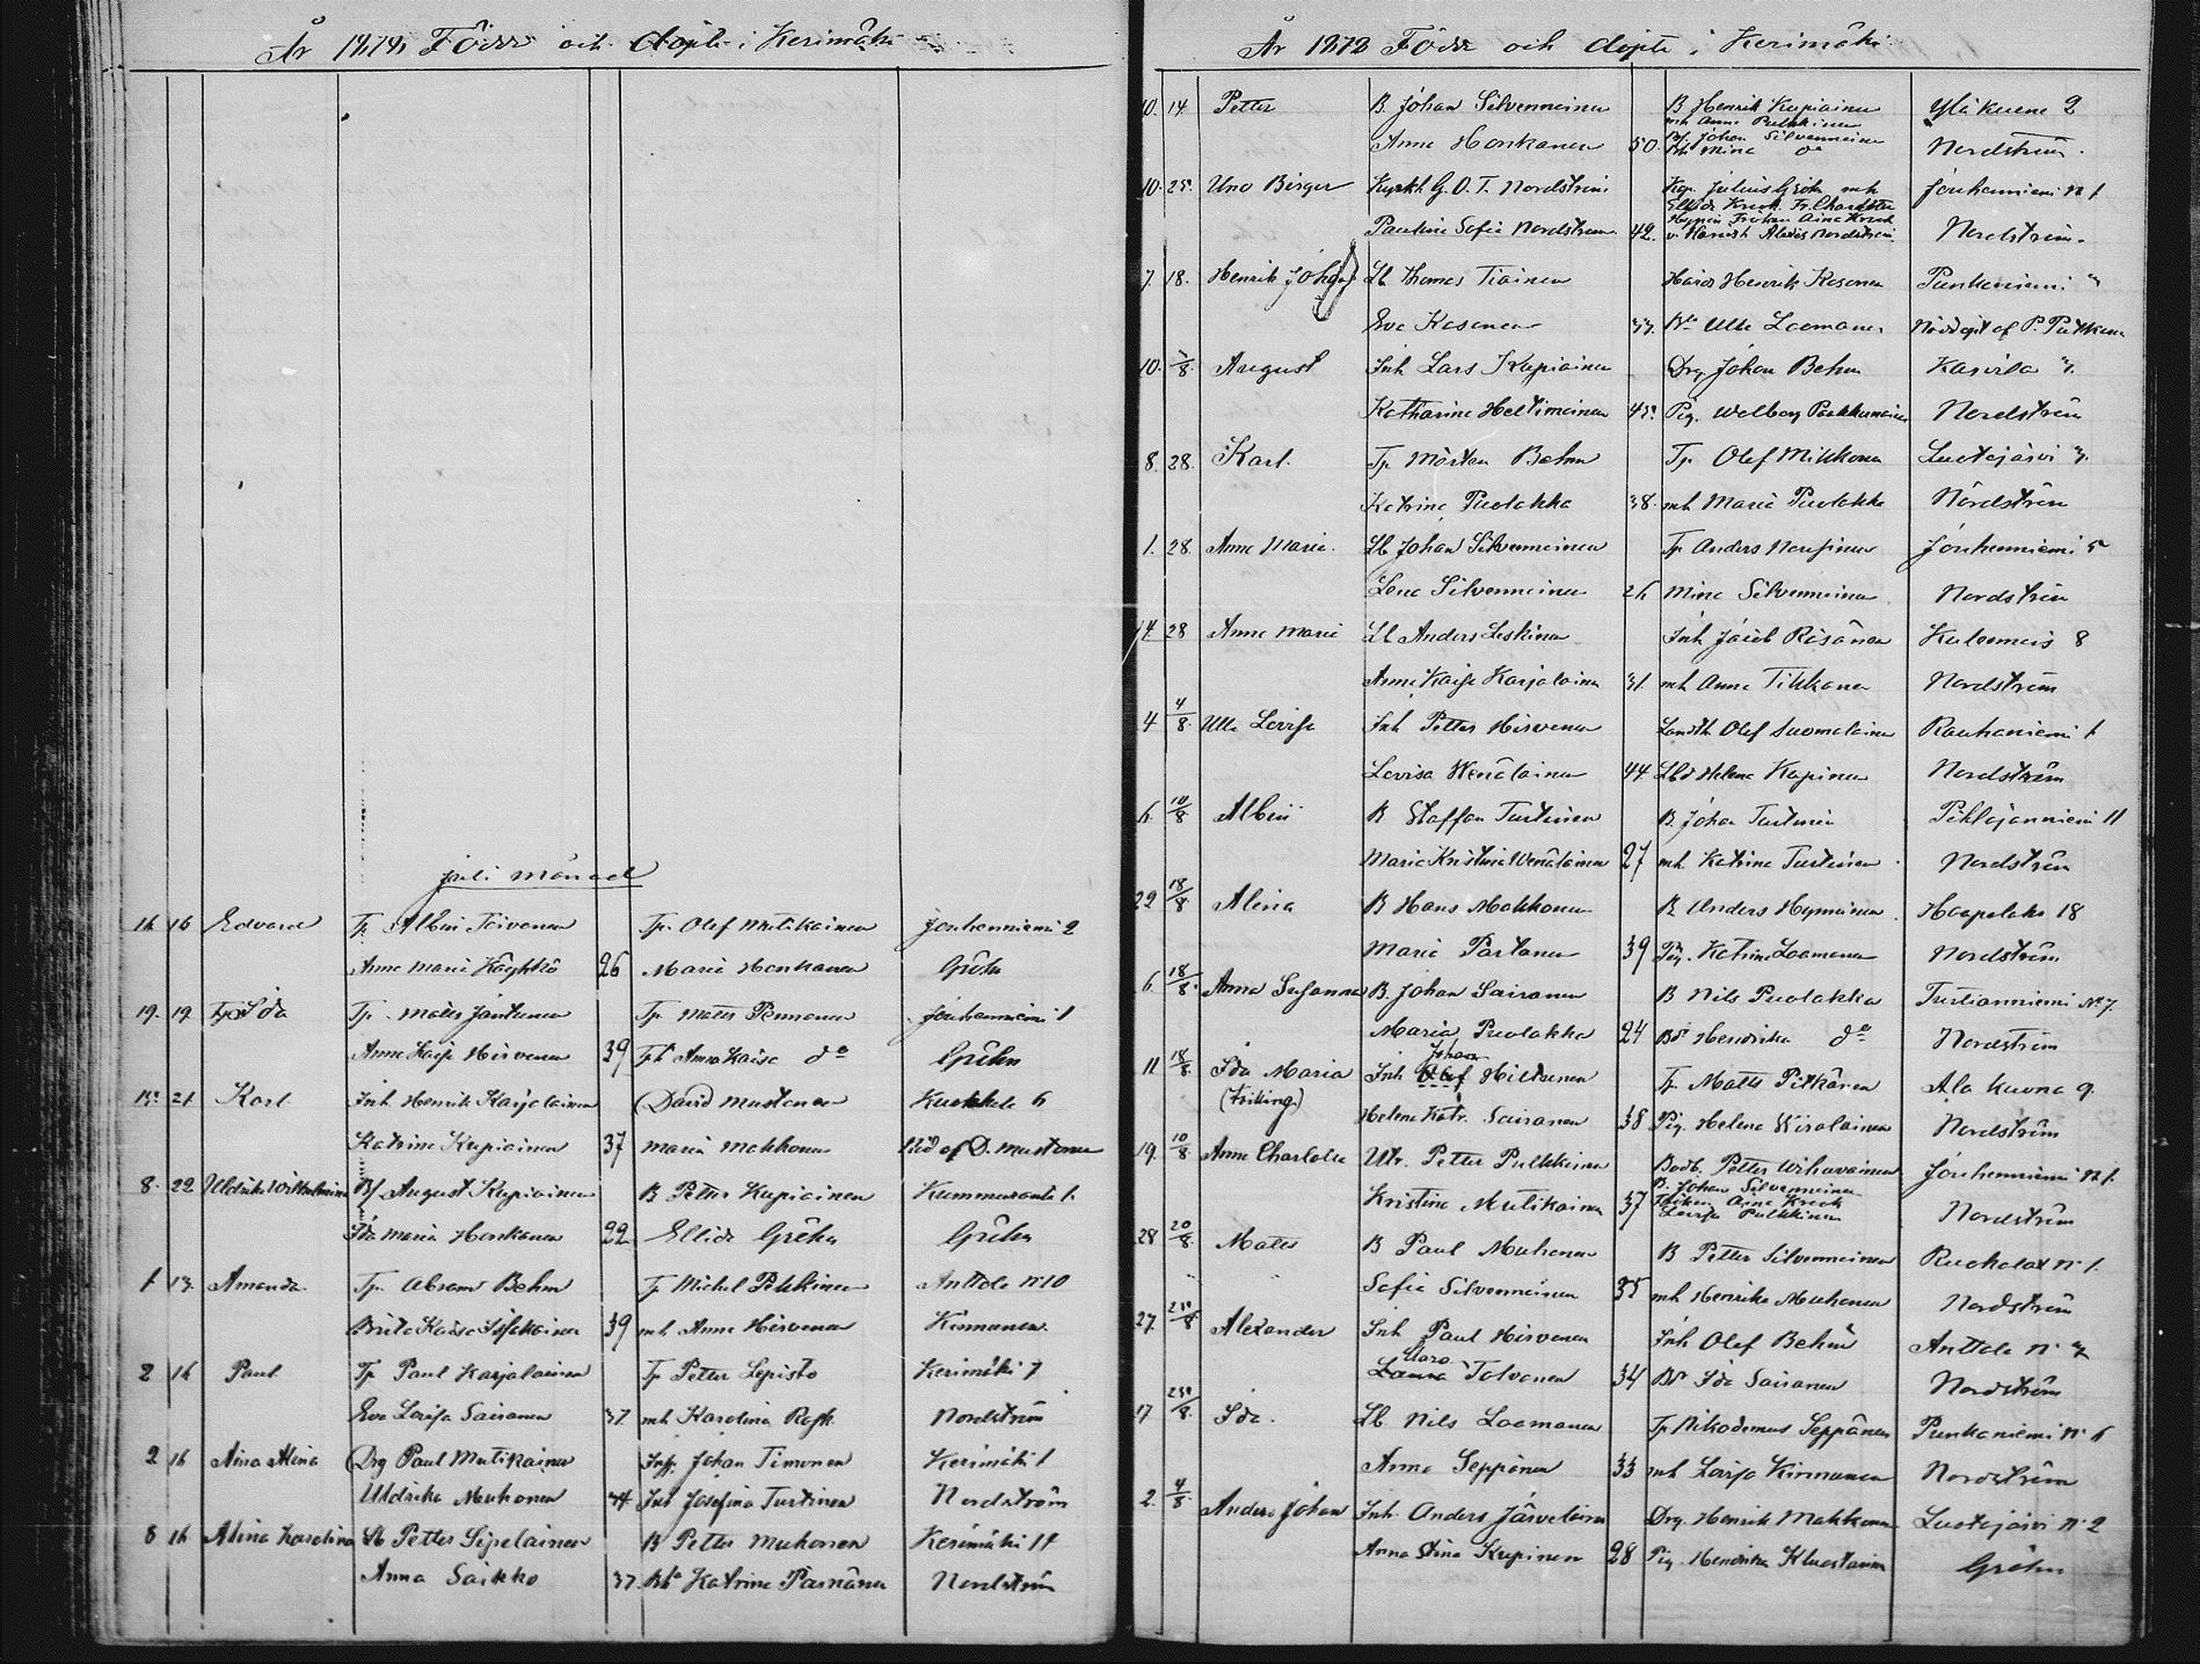 År 1878 Födde och döpte i Kerimäki
juli månad
16 16 Edvard Tp Albin Toivonen Tp. Olof Mutikainen Jouhenniemi 2
Anna Maria Käyhkö 26 Maria Honkanen Gröhn
19. 19 Ida Tp. Mats Jantunen Tp Mats Pennanen Jouhenniemi 1
Anna Kaisa Hirvonen 39 Anna Kaisa do Gröhn
21 Karl Inh Henrik Karjalainen David Mustonen 6
Katrina Kupiainen 37 Maria Makkonen af D. Mustonen
8. 22 Uldrika Wilhelmina August Kupiainen B Petter Kupiainen
Ida Maria Honkanen 22 Ellida Gröhn Gröhn
1 13. Amanda Tp. Abram Behm Tp Michel Pihkinen Anttola N:10
Brita Kaisa 39 mh Anna Hirvonen Kinnunen
2 16 Paul Tp Paul Karjalainen Tp Petter Lepistö Kerimäki 7
Eva Lovisa Sairanen 37 mh Karolina Nordström
2 16 Aina Alina Drg Paul Mutikainen Johan Timonen Kerimäki 1
Uldrika Muhonen 34 Josefina Turtinen Nordström
8 16 Alina Karolina Lb Petter Sipelainen B Petter Muhonen Kerimäki 11
Anna Saikko 37. Katrina Parnänen Nordström
År 1878 Födde och döpte i Kerimäki
10. 14. Petter B. Johan Silvenneinen B Henrik Kupiainen Yläkuona 2
mh Anna Pulkkinen
Anna Honkanen 50. Johan Silvenneinen Nordström.
Mina do
10. 25. Uno Birger Kyrkh G. O. T. Nordström Julius Gröhn mh Jouhenniemi N 1
Pauline Sofia Nordström 42. Alexis Nordström Nordström.
7. 18. Henrik Johan Lb Thomas Tiainen Henrik Kosonen Punkaniemi 3
Eva Kosonen 33. Ulla Loomanen Nöddöpt af P. Putkonen
10. 3/8 August Inh Lars Kupiainen Drg Johan Behm Kasvila 3.
Katharina Heltimoinen 45. Pig. Walborg Nordström
8. 28. Karl. Tp Mårten Behm Tp. Olof Mikkonen Luotojärvi 3.
Katrina Puolakka 38. mh Maria Puolakka Nordström
1. 28. Anna Maria. Lb Johan Silvenneinen Tp Anders Jouhenniemi 5
Lena Silvenneinen 26 Mina Silvenneinen Nordström
14. 28 Anna Maria Lb Anders Leskinen Inh Jacob Räsänen Kulennois 8
Anna Kaisa Karjalainen 31. mh Anna Tikkanen Nordström
4 4/8 Ulla Lovisa Inh Petter Hirvonen Landth Olof Suomalainen Rauhaniemi 1
Lovisa Wenäläinen 44 Helena Kapinen Nordström
6. 10/8 Albin B Staffan Turtinen B. Johan Turtinen Pihlajanniemi 11
Maria Kristina Wenäläinen 27 mh Katrina Turtinen Nordström
22 18/8 Alina B Hans Makkonen B Anders Hynninen Haapalaks 18
Maria Partanen 39 Pig. Katrina Loomanen Nordström
6. 18/8. Anna Susanna B. Johan Sairanen B Nils Puolakka Turtianniemi No 7.
Maria Puolakka 24 Bdr Hendrika do Nordström
11 18/8. Ida Maria Inh Olof Johan Hiltunen Tp. Matts Pitkänen Ala kuona 9.
(Trilling.) Helena Katr. Sairanen 38 Pig. Helena Wiralainen Nordström
19. 10/8 Anna Charlotta Utr. Petter Pulkkinen Bodb. Petter Wihavainen Jouhenniemi N 1.
B. Johan Silvenneinen
Kristina Mutikainen 37 Fröken Aina Krook Nordström
Lovisa Pulkkinen
28 20/8. Matts B Paul Muhonen B Petter Silvenneinen Ruokolax N. 1.
Sofia Silvenneinen 35 mh Henrika Muhonen Nordström
27. 25/8 Alexander Inh Paul Hirvonen Inh Olof Behm Anttola N:
Laura Clara Tolvanen 34 Bdr Ida Sairanen Nordström
17 25/8. Ida. Lb. Nils Loomanen Tp Nikodemus Seppänen Punkaniemi N: 6
Anna Seppänen 33 mh Lovisa Kinnunen Nordström
2. 4/8. Anders Johan Inh. Anders Järveläinen Drg. Henrik Makkonen Luotojärvi N: 2
Anna Stina Kupinen 28 Pig. Hendrika Gröhn